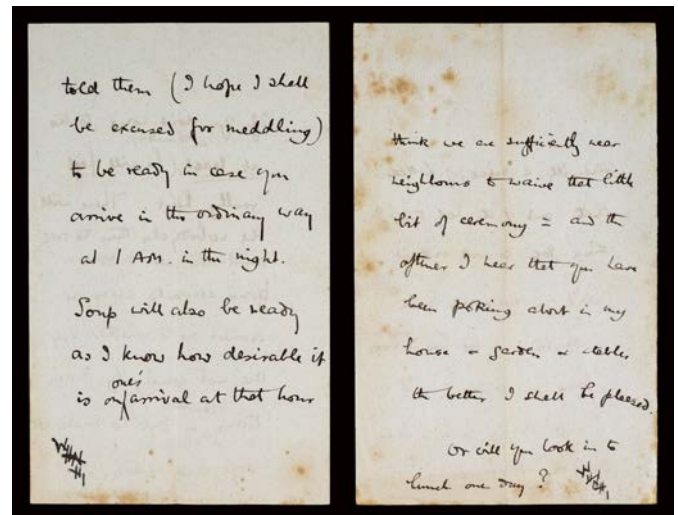 told them (I hope I shall
be excused for meddling)
to be ready in case you
arrive in the ordinary way
at 1 AM. in the night.
Soup will also be ready
as I know how desirable it
one's
is on arrival at that hour
think we are sufficiently near
neighbours to waive that little
bit of ceremony = and the
oftener I hear that you have
been poking about in my
house or garden or stables
the better I shall be pleased.
Or will you look in to
lunch one day?